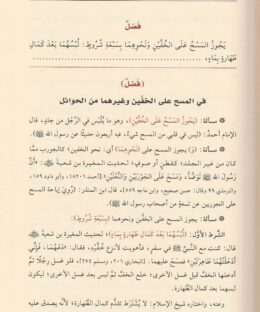 فَصْلٌ
يَجُوزُ المَسْحُ عَلَى الخُفَّيْنِ وَنَحْوِهِمَا بِسَبْعَةِ شُرُوطٍ: لُبْسُهُمَا بَعْدَ كَمَالِ
طَهَارَةٍ بِمَاءٍ،
(فَصْلٌ)
في المسح على الخفين وغيرهما من الحوائل
مسألة: (يَجُوزُ المَسْحُ عَلَى الخُفَّيْنِ)، وهو ما يُلْبَس في الرِّجل من جلدٍ، قال
الإمام أحمد: «ليس في قلبي من المسح شيء، فيه أربعون حديثًا عن رسول الله ﷺ».
مسألة: (وَ) يجوز المسح على (نَحْوِهِمَا) أي: نحو خفيه؛ كالجورب مما
كان من غير الجلد؛ كقطنٍ أو صوفٍ؛ لحديث المغيرة بن شعبة: «أنَّ
رسول الله ﷺ توضَّأ، ومسح على الجوربين والنعلين» [أحمد ١٨٢٠٦، وأبو داود ١٥٩،
والترمذي ٩٩ وقال: حسن صحيح، وابن ماجه ٥٥٩]، قال ابن المنذر: (رُوِيَ إباحة المسح
على الجوربين عن تسعةٍ من أصحاب رسول الله ﷺ).
مسألة: يجوز المسح على الخفين ونحوهما (بِسَبْعَةِ شُرُوطٍ):
الشرط الأوَّل: (لُبْسُهُمَا بَعْدَ كَمَالِ طَهَارَةٍ بِمَاءٍ)؛ لحديث المغيرة بن شعبة
قال: كنت مع النبيِّ ﷺ في سفر، فأهويت لأنزع خُفَّيه، فقال: «دَعْهُمَا، فَإِنِّي
أَدْخَلْتُهُمَا طَاهِرَتَيْنِ» فمسح عليهما [البخاري ٢٠٦، ومسلم ٢٧٤]، فلو غسل رجلًا ثمَّ
أدخلها الخفَّ قبل غسل الأخرى؛ خلع الخفَّ ثم لبس بعد غسل الأخرى؛ ليكون
لبسهما بعد كمال الطهارة.
وعنه، واختاره شيخ الإسلام: لا يُشترط تقدُّم كمال الطَّهارة؛ لأنَّه يصدق عليه